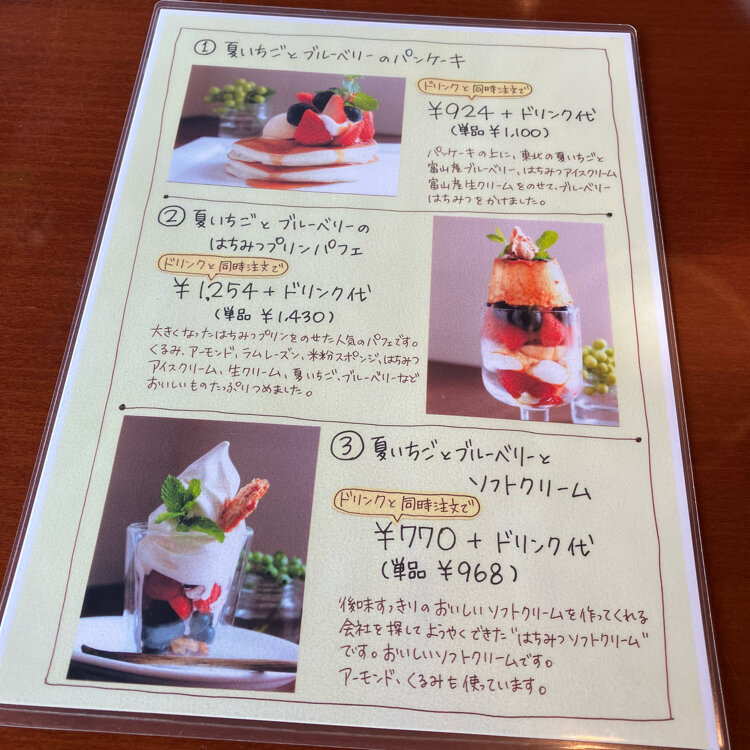 ① 夏いちごとブルーベリーのパンケーキ
ドリンクと同時注文で
¥924+ドリンク代
(単品 ¥1,100)
パンケーキの上に、東北の夏いちごと
富山産ブルーベリー、はちみつアイスクリーム
富山産生クリームをのせて、ブルーベリー
はちみつをかけました。
② 夏いちごとブルーベリーの
はちみつプリンパフェ
ドリンクと同時注文で
¥1,254+ドリンク代
(単品 ¥1,430)
大きくなったはちみつプリンをのせた人気のパフェです。
くるみ、アーモンド、ラムレーズン、米粉スポンジ、はちみつ
アイスクリーム、生クリーム、夏いちご、ブルーベリーなど
おいしいものたっぷりつめました。
③ 夏いちごとブルーベリーと
ソフトクリーム
ドリンクと同時注文で
¥770+ドリンク代
(単品 ¥968)
後味すっきりのおいしいソフトクリームを作ってくれる
会社を探してようやくできた"はちみつソフトクリーム"
です。おいしいソフトクリームです。
アーモンド、くるみも使っています。